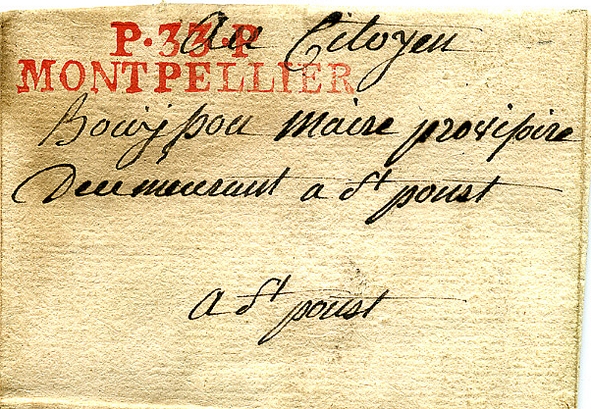 P·33·P
MONTPELLIER
Au Citoyen
maire provisoire
Deumeurant a St poust
a St poust